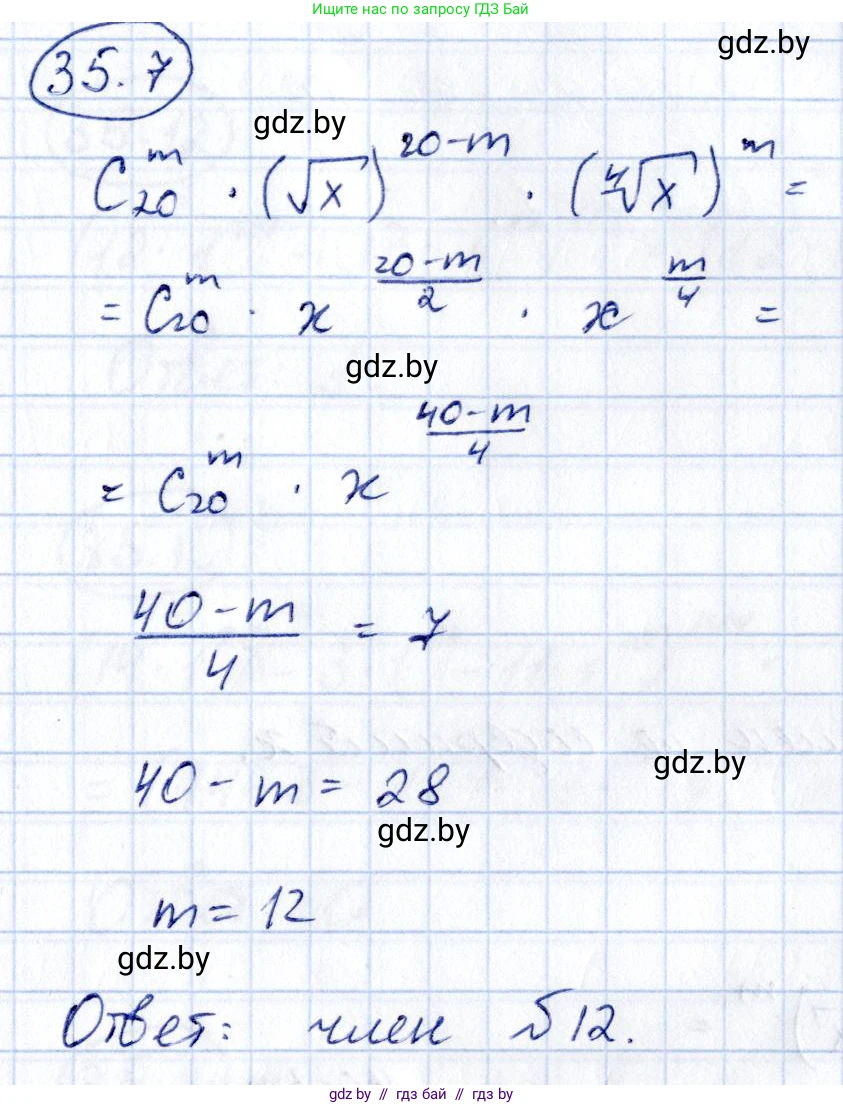 Ищите нас по запросу ГДЗ Бай
gdz.by
35.7
gdz.by
C₂₀ᵐ · (√x)^(20-m) · (⁴√x)^m =
= C₂₀ᵐ · x^((20-m)/2) · x^(m/4) =
gdz.by
= C₂₀ᵐ · x^((40-m)/4)
(40-m)/4 = 7
gdz.by
40 - m = 28
gdz.by
m = 12
gdz.by
Ответ: член №12.
gdz.by // гдз бай // гдз by